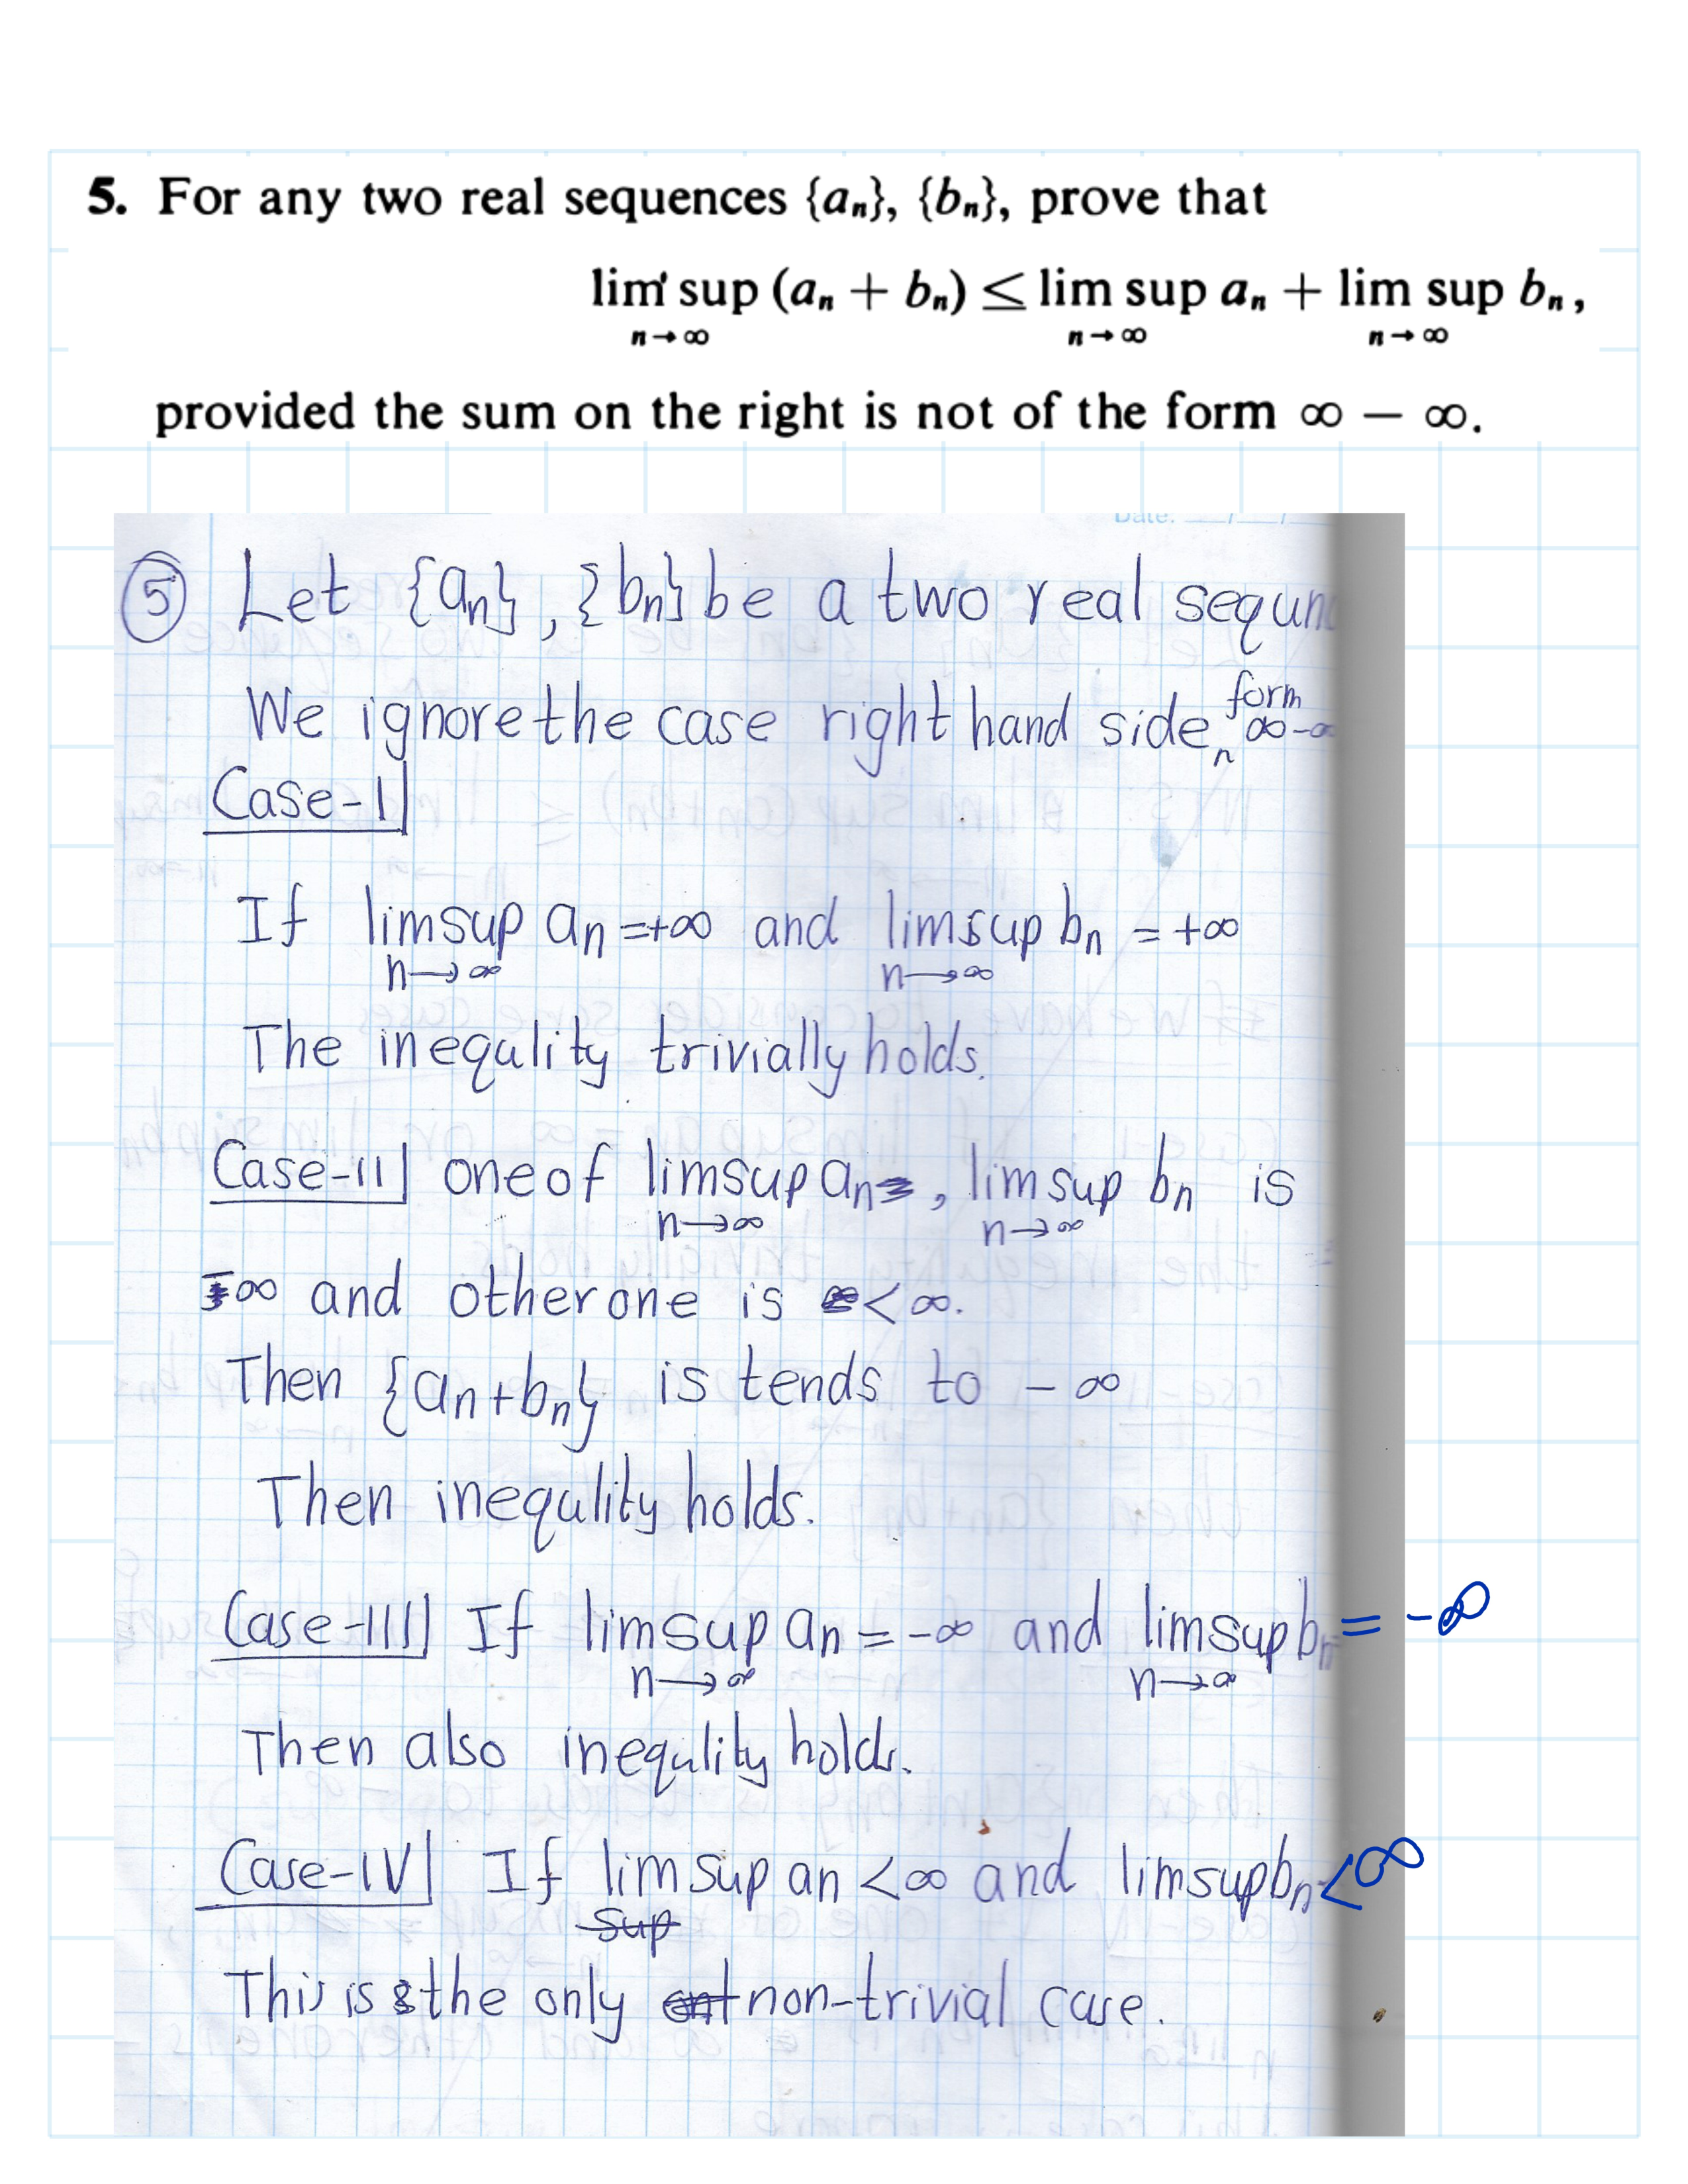 5. For any two real sequences {aₙ}, {bₙ}, prove that
lim sup (aₙ + bₙ) ≤ lim sup aₙ + lim sup bₙ,
n→∞ n→∞ n→∞
provided the sum on the right is not of the form ∞ − ∞.
Date: / /
5 Let {aₙ}, {bₙ} be a two real sequn
We ignore the case right hand side form ∞-∞
Case-I
If limsup aₙ = +∞ and limsup bₙ = +∞
n→∞ n→∞
The inequlity trivially holds.
Case-II one of limsup aₙ, limsup bₙ is
n→∞ n→∞
-∞ and other one is < ∞.
Then {aₙ+bₙ} is tends to -∞
Then inequlity holds.
Case-III If limsup aₙ = -∞ and limsup bₙ = -∞
n→∞ n→∞
Then also inequlity holds.
Case-IV If limsup aₙ < ∞ and limsup bₙ < ∞
sup
This is the only non-trivial case.